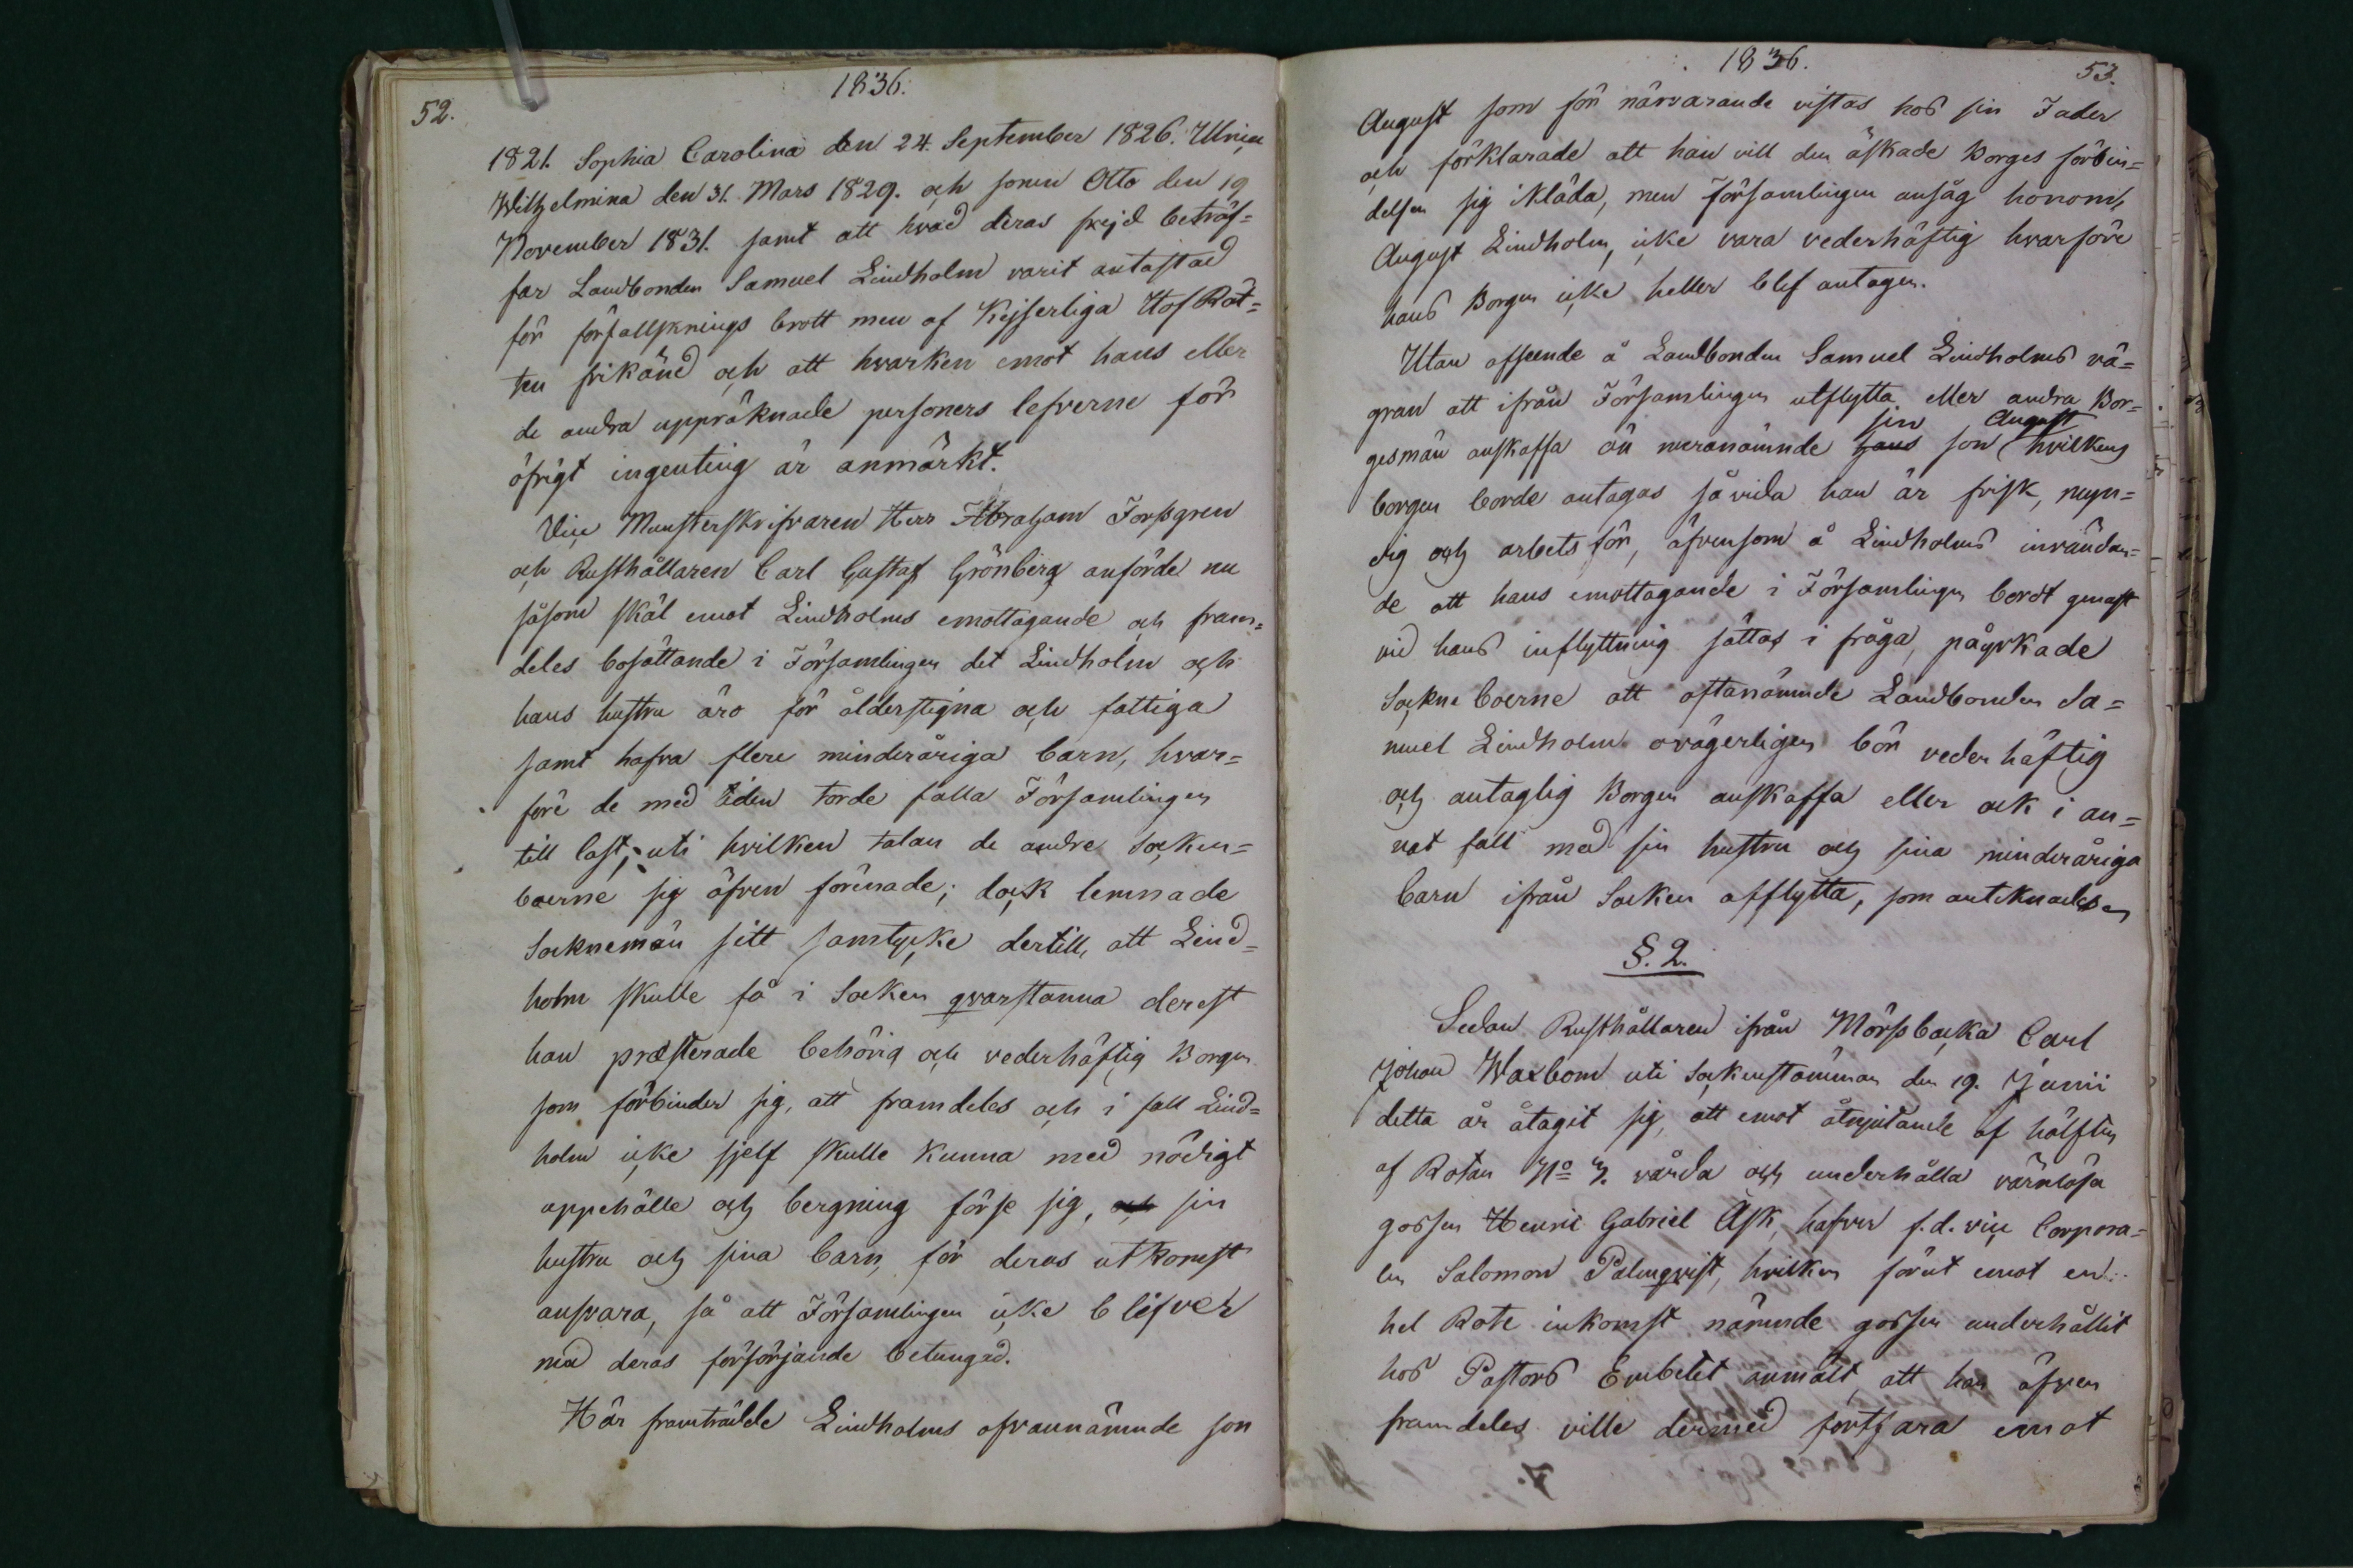 52.
1836.
1821. Sophia Carolina den 24. September 1826. Ulrica
Wilhelmina den 31. Mars 1829. och sonen Otto den 19
November 1831. samt att hvad deras frejd beträf=
far Landbonden Samuel Lindholm varit antastad
för förfallsknings brott men af Kejserliga Hof Rät=
ten frikänd och att hvarken emot hans eller
de andra uppräknade personers lefverne för
öfrigt ingenting är anmärkt.
Vice Munsterskrifvaren Herr Abraham Forsgren
och Rusthållaren Carl Gustaf Grönberg anförde nu
såsom skäl emot Lindholms emottagande och fram=
deles bosättande i Församlingen det Lindholm och
hans hustru äro för ålderstigna och fattiga
samt hafva flere minderåriga barn, hvar=
före de med tiden torde falla Församlingen
till last; uti hvilken talan de andre Socken=
boerne sig äfven förenade; dock lemnade
Socknemän sitt samtycke dertill, att Lind=
holm skulle få i Socken qvarstanna derest
han præsterade behörig och vederhäftig Borgen
som förbinder sig, att framdeles och i fall Lind=
holm icke sjelf skulle kunna med nödigt
uppehälle och bergning förse sig, och sin
hustru och sina barn, för deras utkomst
ansvara, så att Församlingen icke blifver
med deras försörjande betungad.
Här framträdde Lindholms ofvannämnde son
1836.
53.
August som för närvarande vistas hos sin Fader
och förklarade att han vill den äskade Borges förbin=
delsen sig ikläda, men Församlingen ansåg honom,
August Lindholm, icke vara vederhäftig hvarföre
hans Borgen icke heller blef antagen.
Utan afseende å Landbonden Samuel Lindholms vä=
gran att ifrån Församlingen utflytta eller andra Bor=
sin August
gesmän anskaffa än meranämnde hans son hvilkens
borgen borde antagas så vida han är frisk, myn=
dig och arbetsför, äfvensom å Lindholms invändan=
de att hans emottagande i Församlingen bordt genast
vid hans inflyttning sättas i fråga, påyrkade
Sockne boerne att oftanämnde Landbonden Sa=
muel Lindholm ovägerligen bör vederhäftig
och antaglig Borgen anskaffa eller ock i an=
nat fall med sin hustru och sina minderåriga
barn ifrån Socken afflytta, som antecknades
§. 2.
Sedan Rusthållaren ifrån Mörsbacka Carl
Johan Waxbom uti Sockenstämman den 19. Junii
detta år åtagit sig, att emot åtnjutande af hälften
af Rotan No 7. vårda och underhålla värnlösa
gossen Henric Gabriel Ask, hafver f.d. vice Corpora=
len Salomon Palmqvist, hvilken förut emot en
hel Rote inkomst nämnde gossen underhållit
hos Pastors Embetet anmält, att han äfven
framdeles ville dermed fortfara emot